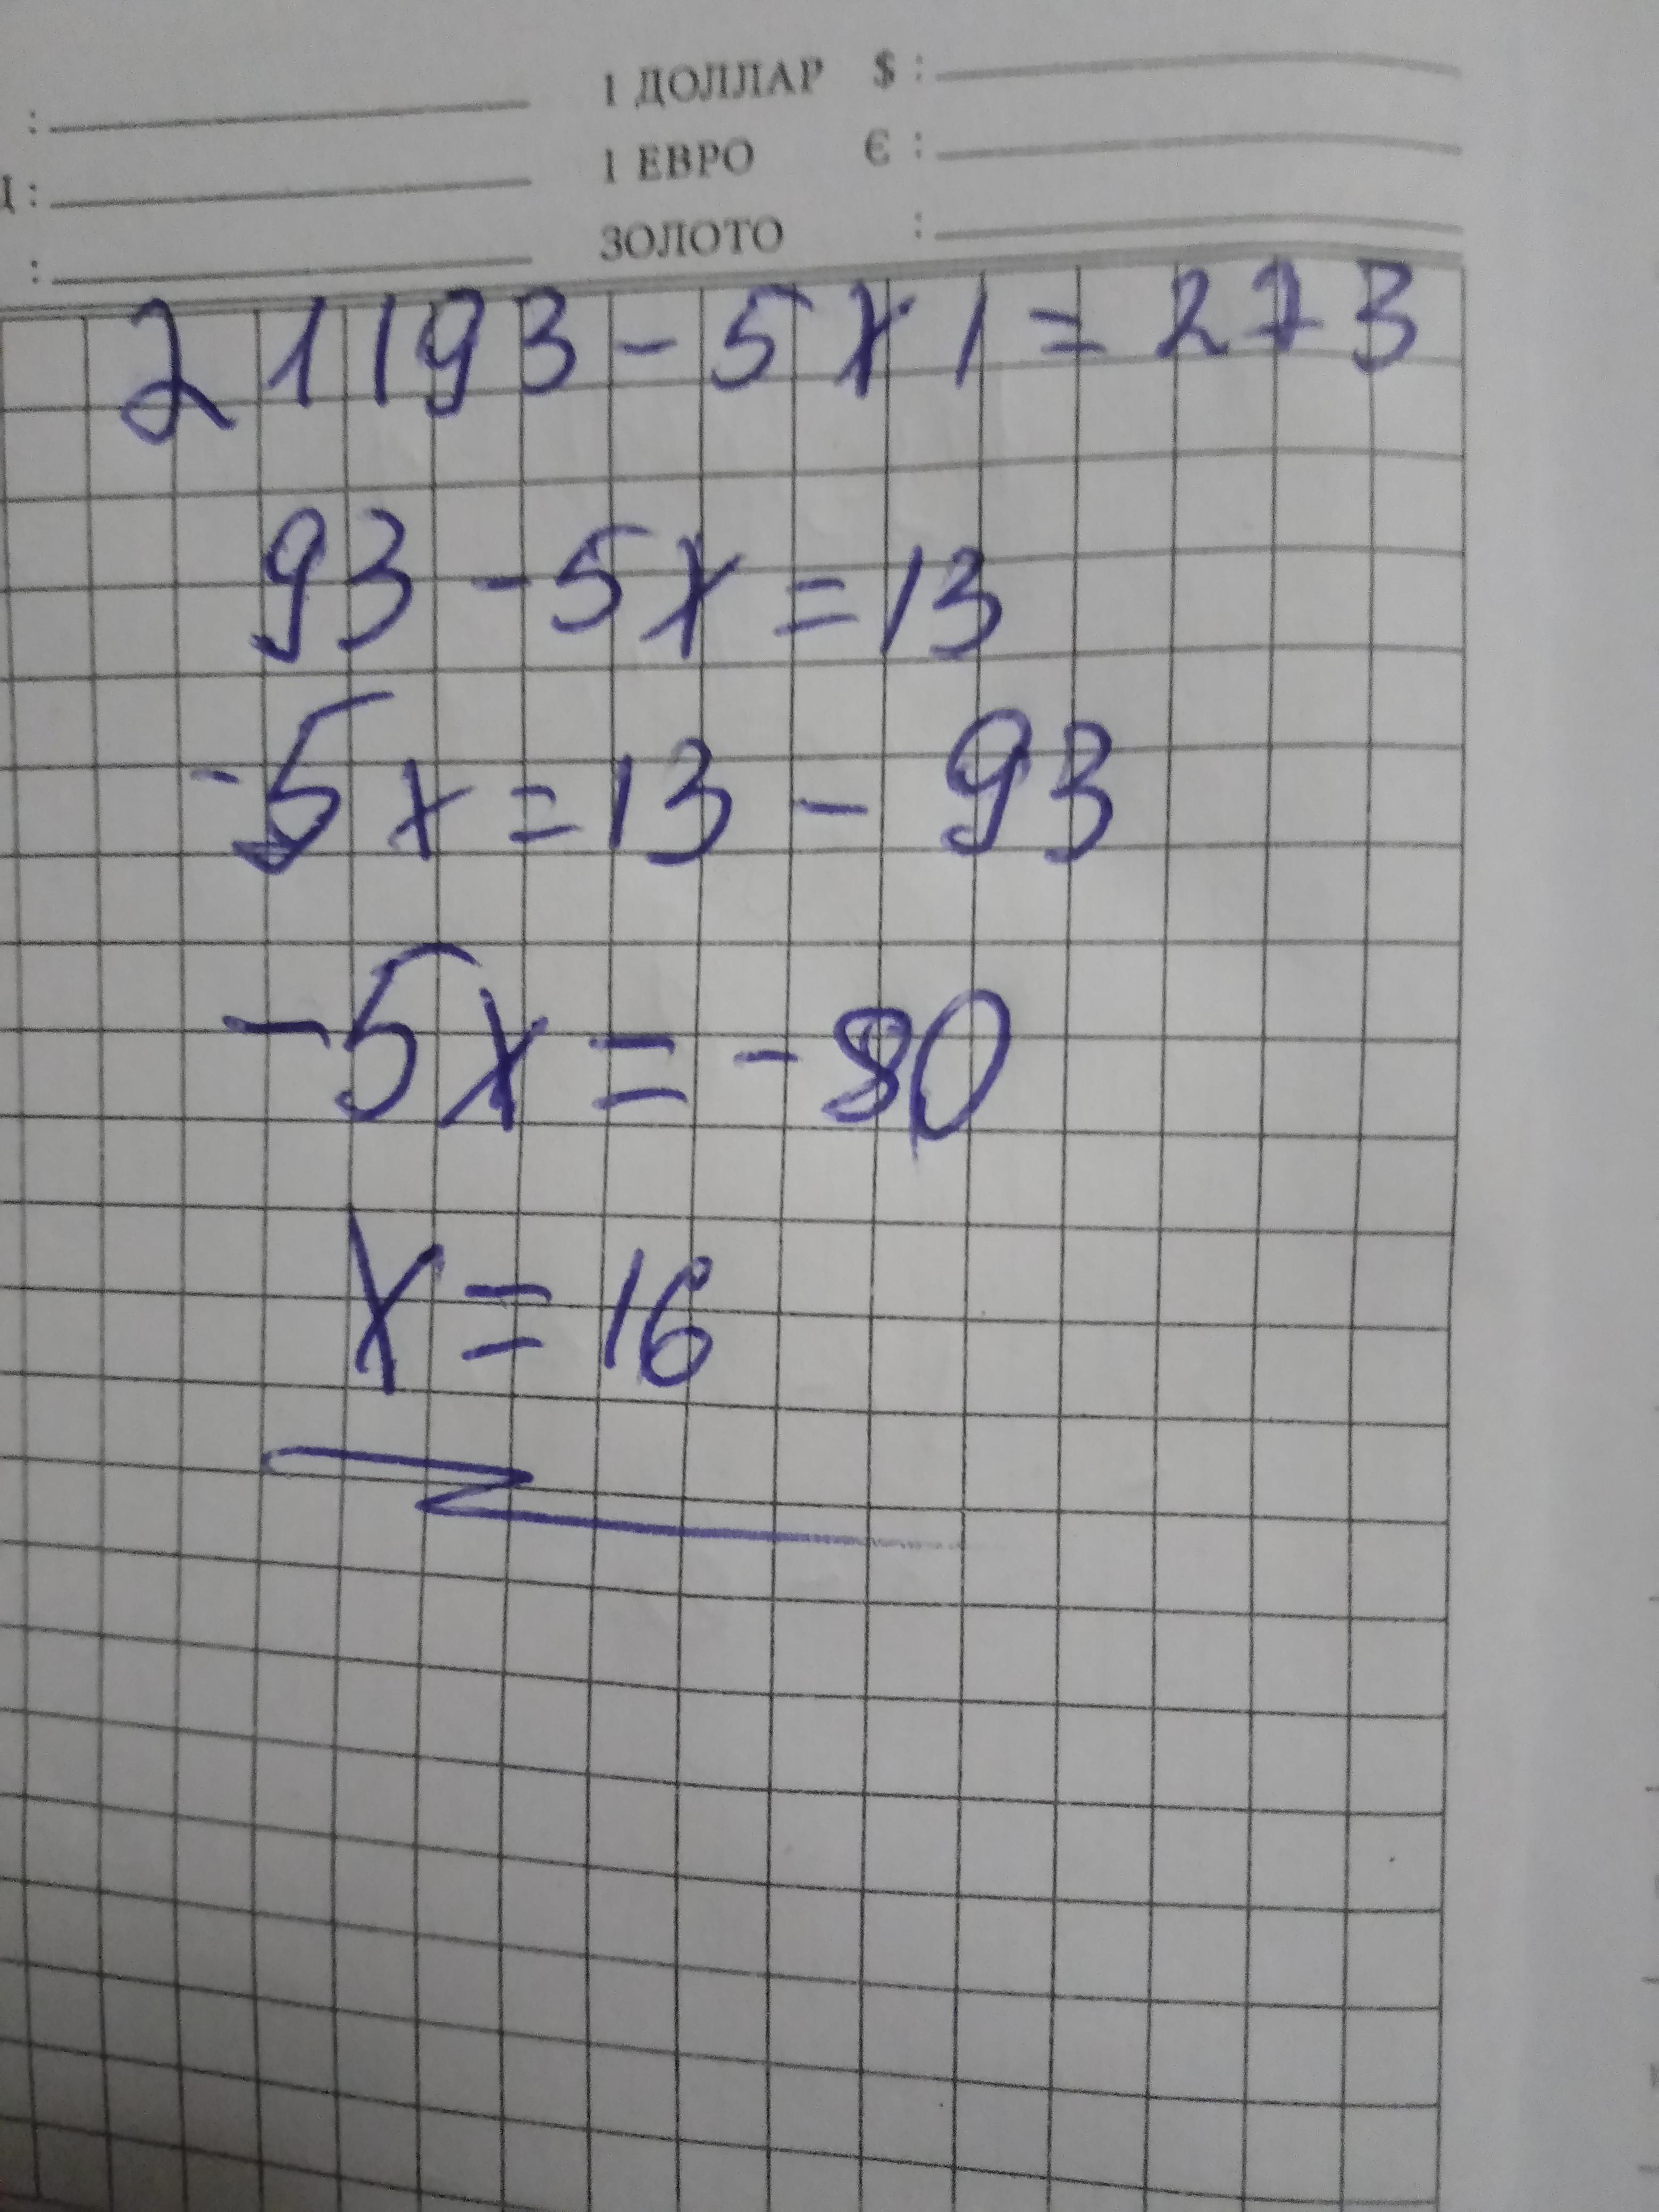 :
1 ДОЛЛАР $ :
:
1 ЕВРО Є :
:
ЗОЛОТО :
21193-5x1=273
93-5x=13
-5x=13-93
-5x=-80
x=16